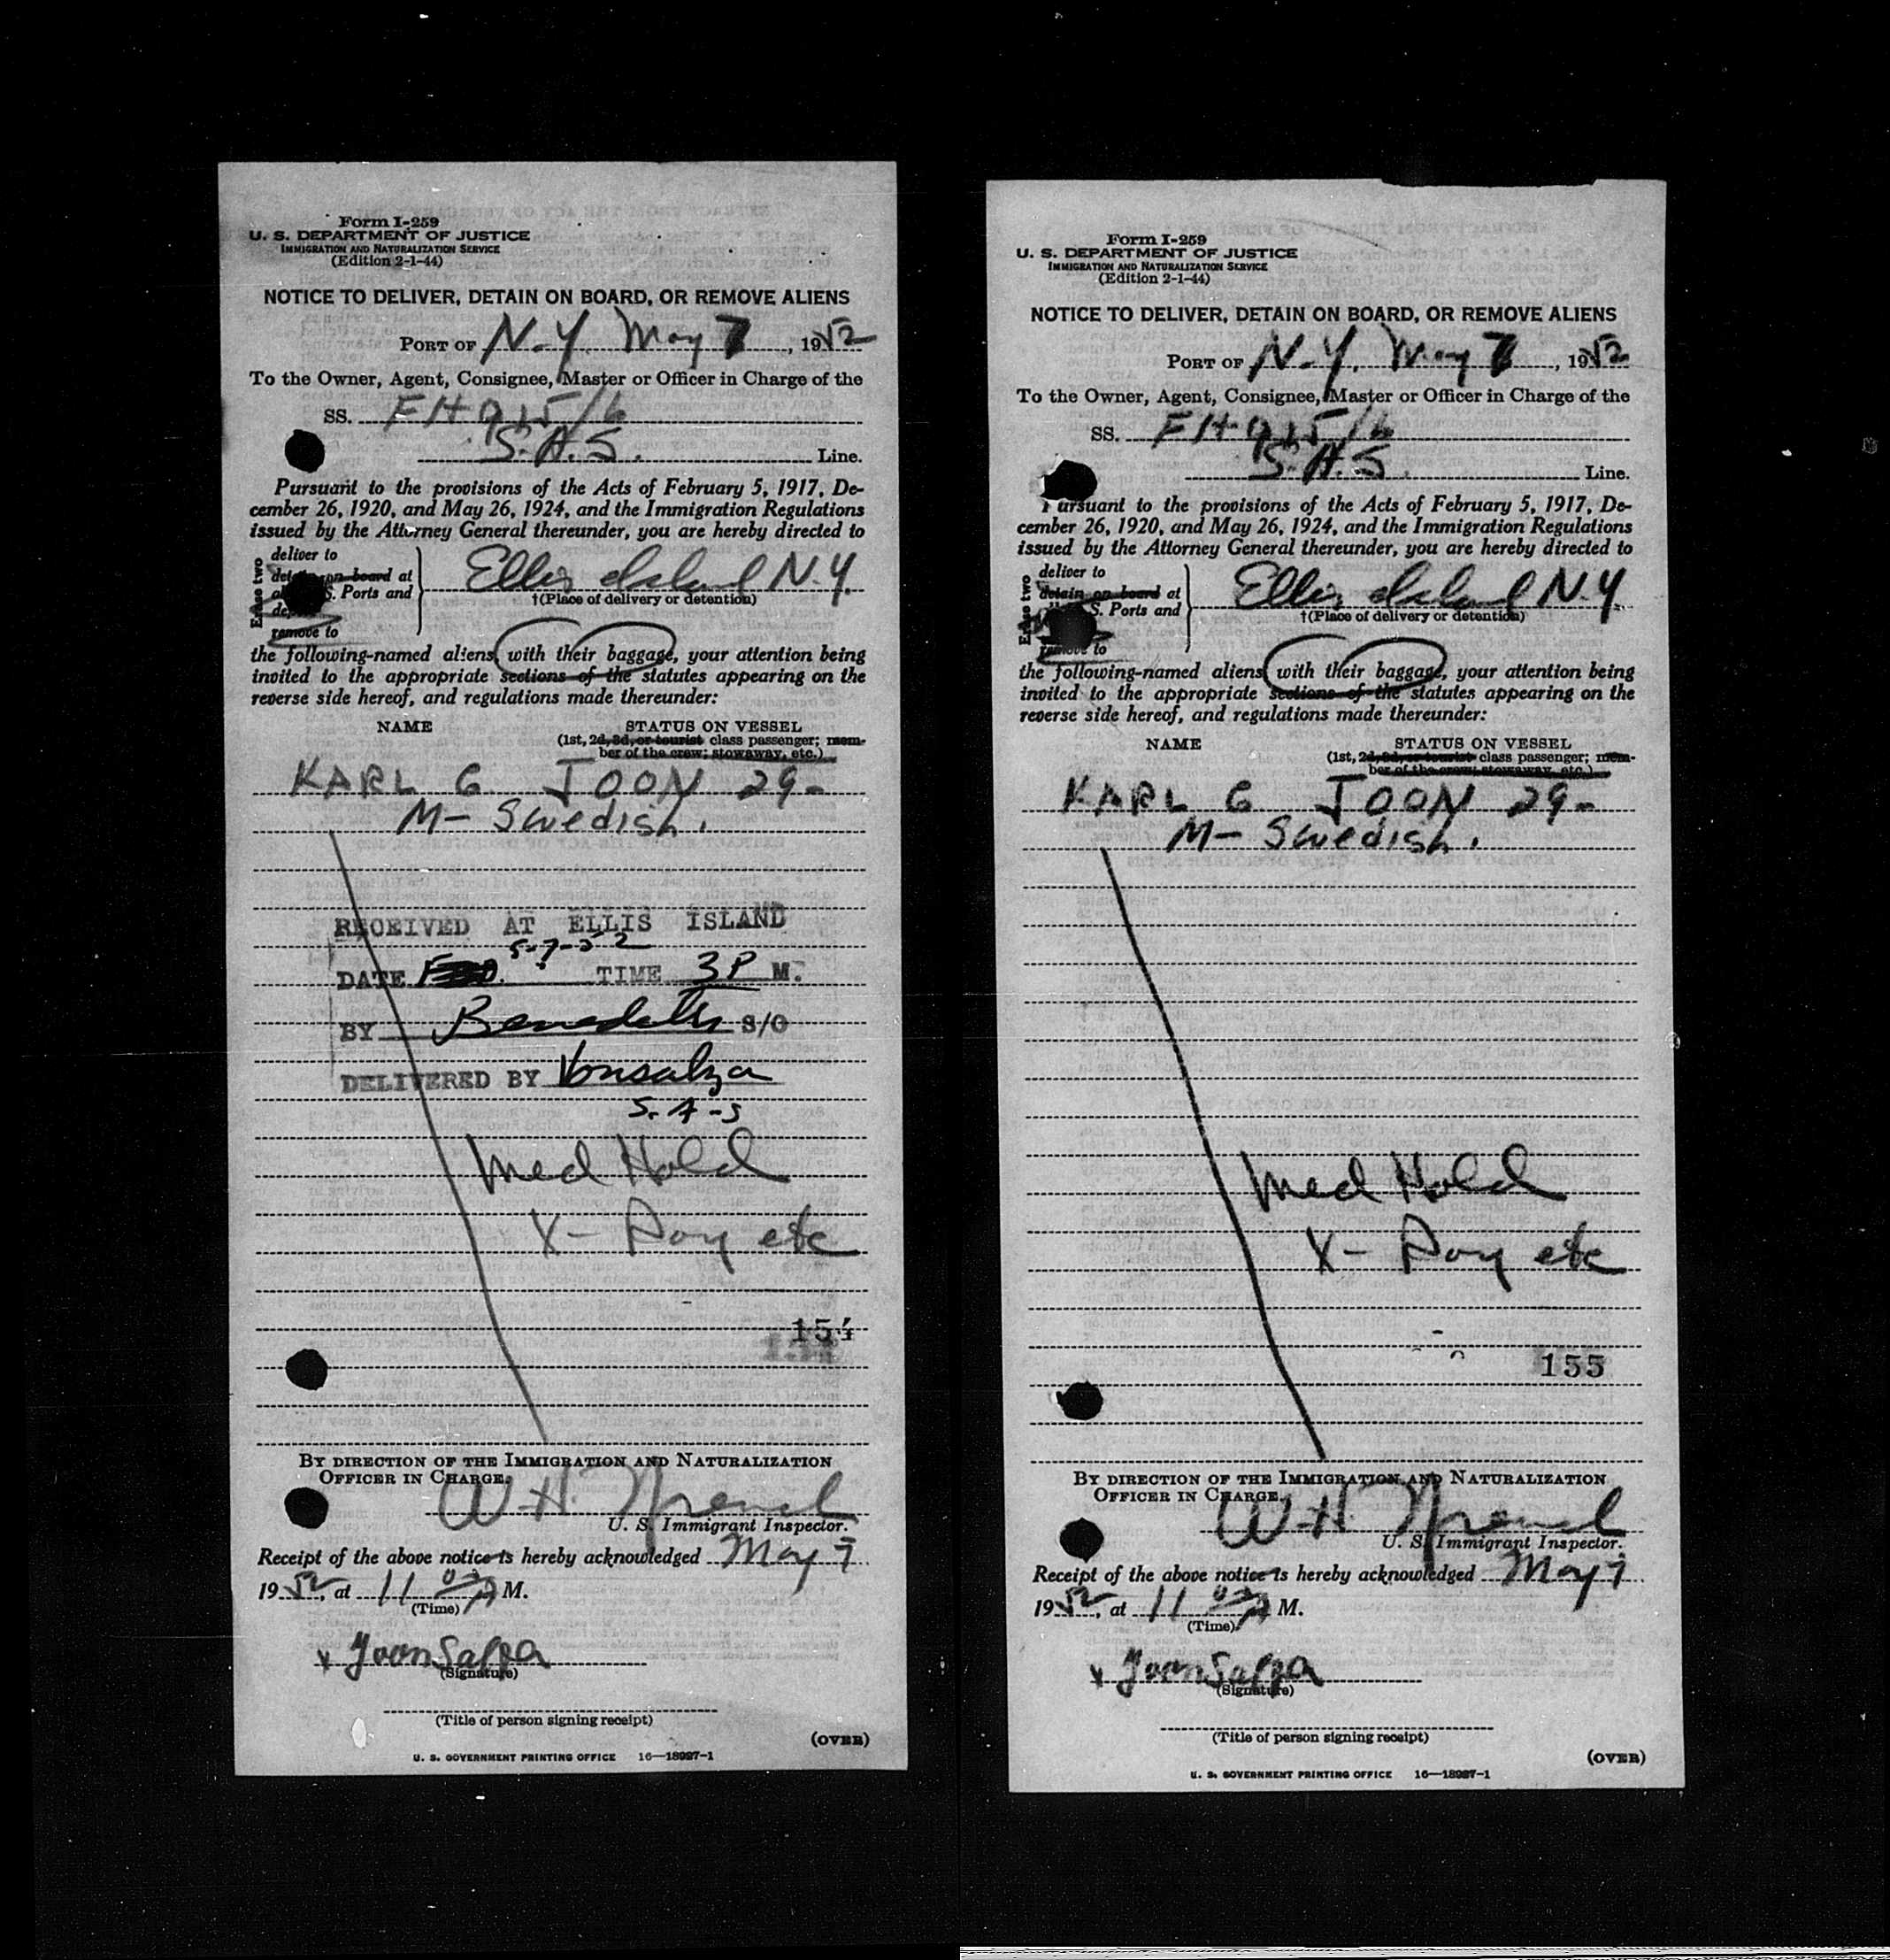 Form I-259
U. S. DEPARTMENT OF JUSTICE
IMMIGRATION AND NATURALIZATION SERVICE
(Edition 2-1-44)
NOTICE TO DELIVER, DETAIN ON BOARD, OR REMOVE ALIENS
PORT OF N.Y. May 7, 1952
To the Owner, Agent, Consignee, Master or Officer in Charge of the
SS. FH 915/6
S.A.S. Line.
Pursuant to the provisions of the Acts of February 5, 1917, De-
cember 26, 1920, and May 26, 1924, and the Immigration Regulations
issued by the Attorney General thereunder, you are hereby directed to
Erase two
deliver to
detain on board at
S. Ports and
remove to
Ellis Island N.Y.
†(Place of delivery or detention)
the following-named aliens, with their baggage, your attention being
invited to the appropriate sections of the statutes appearing on the
reverse side hereof, and regulations made thereunder:
NAME STATUS ON VESSEL
(1st, 2d, 3d, or tourist class passenger; mem-
ber of the crew; stowaway, etc.)
KARL G JOON 29-
M- Swedish.
RECEIVED AT ELLIS ISLAND
5-7-52
DATE TIME 3P M.
BY S/O
DELIVERED BY Vonsalza
S-A-S
Med Hold
X-Ray etc
154
BY DIRECTION OF THE IMMIGRATION AND NATURALIZATION
OFFICER IN CHARGE.
W.H.
U. S. Immigrant Inspector.
Receipt of the above notice is hereby acknowledged May 7
1952, at 11 A M.
(Time)
x
(Signature)
(Title of person signing receipt)
(OVER)
U. S. GOVERNMENT PRINTING OFFICE 16—18987-1
Form I-259
U. S. DEPARTMENT OF JUSTICE
IMMIGRATION AND NATURALIZATION SERVICE
(Edition 2-1-44)
NOTICE TO DELIVER, DETAIN ON BOARD, OR REMOVE ALIENS
PORT OF N.Y. May 7, 1952
To the Owner, Agent, Consignee, Master or Officer in Charge of the
SS. FH 915/6
S.A.S. Line.
Pursuant to the provisions of the Acts of February 5, 1917, De-
cember 26, 1920, and May 26, 1924, and the Immigration Regulations
issued by the Attorney General thereunder, you are hereby directed to
Erase two
deliver to
detain on board at
S. Ports and
remove to
Ellis Island N.Y.
†(Place of delivery or detention)
the following-named aliens, with their baggage, your attention being
invited to the appropriate sections of the statutes appearing on the
reverse side hereof, and regulations made thereunder:
NAME STATUS ON VESSEL
(1st, 2d, 3d, or tourist class passenger; mem-
ber of the crew; stowaway, etc.)
KARL G JOON 29-
M- Swedish.
Med Hold
X-Ray etc
155
BY DIRECTION OF THE IMMIGRATION AND NATURALIZATION
OFFICER IN CHARGE.
W.H.
U. S. Immigrant Inspector.
Receipt of the above notice is hereby acknowledged May 7
1952, at 11 A M.
(Time)
x
(Signature)
(Title of person signing receipt)
(OVER)
U. S. GOVERNMENT PRINTING OFFICE 16—18987-1